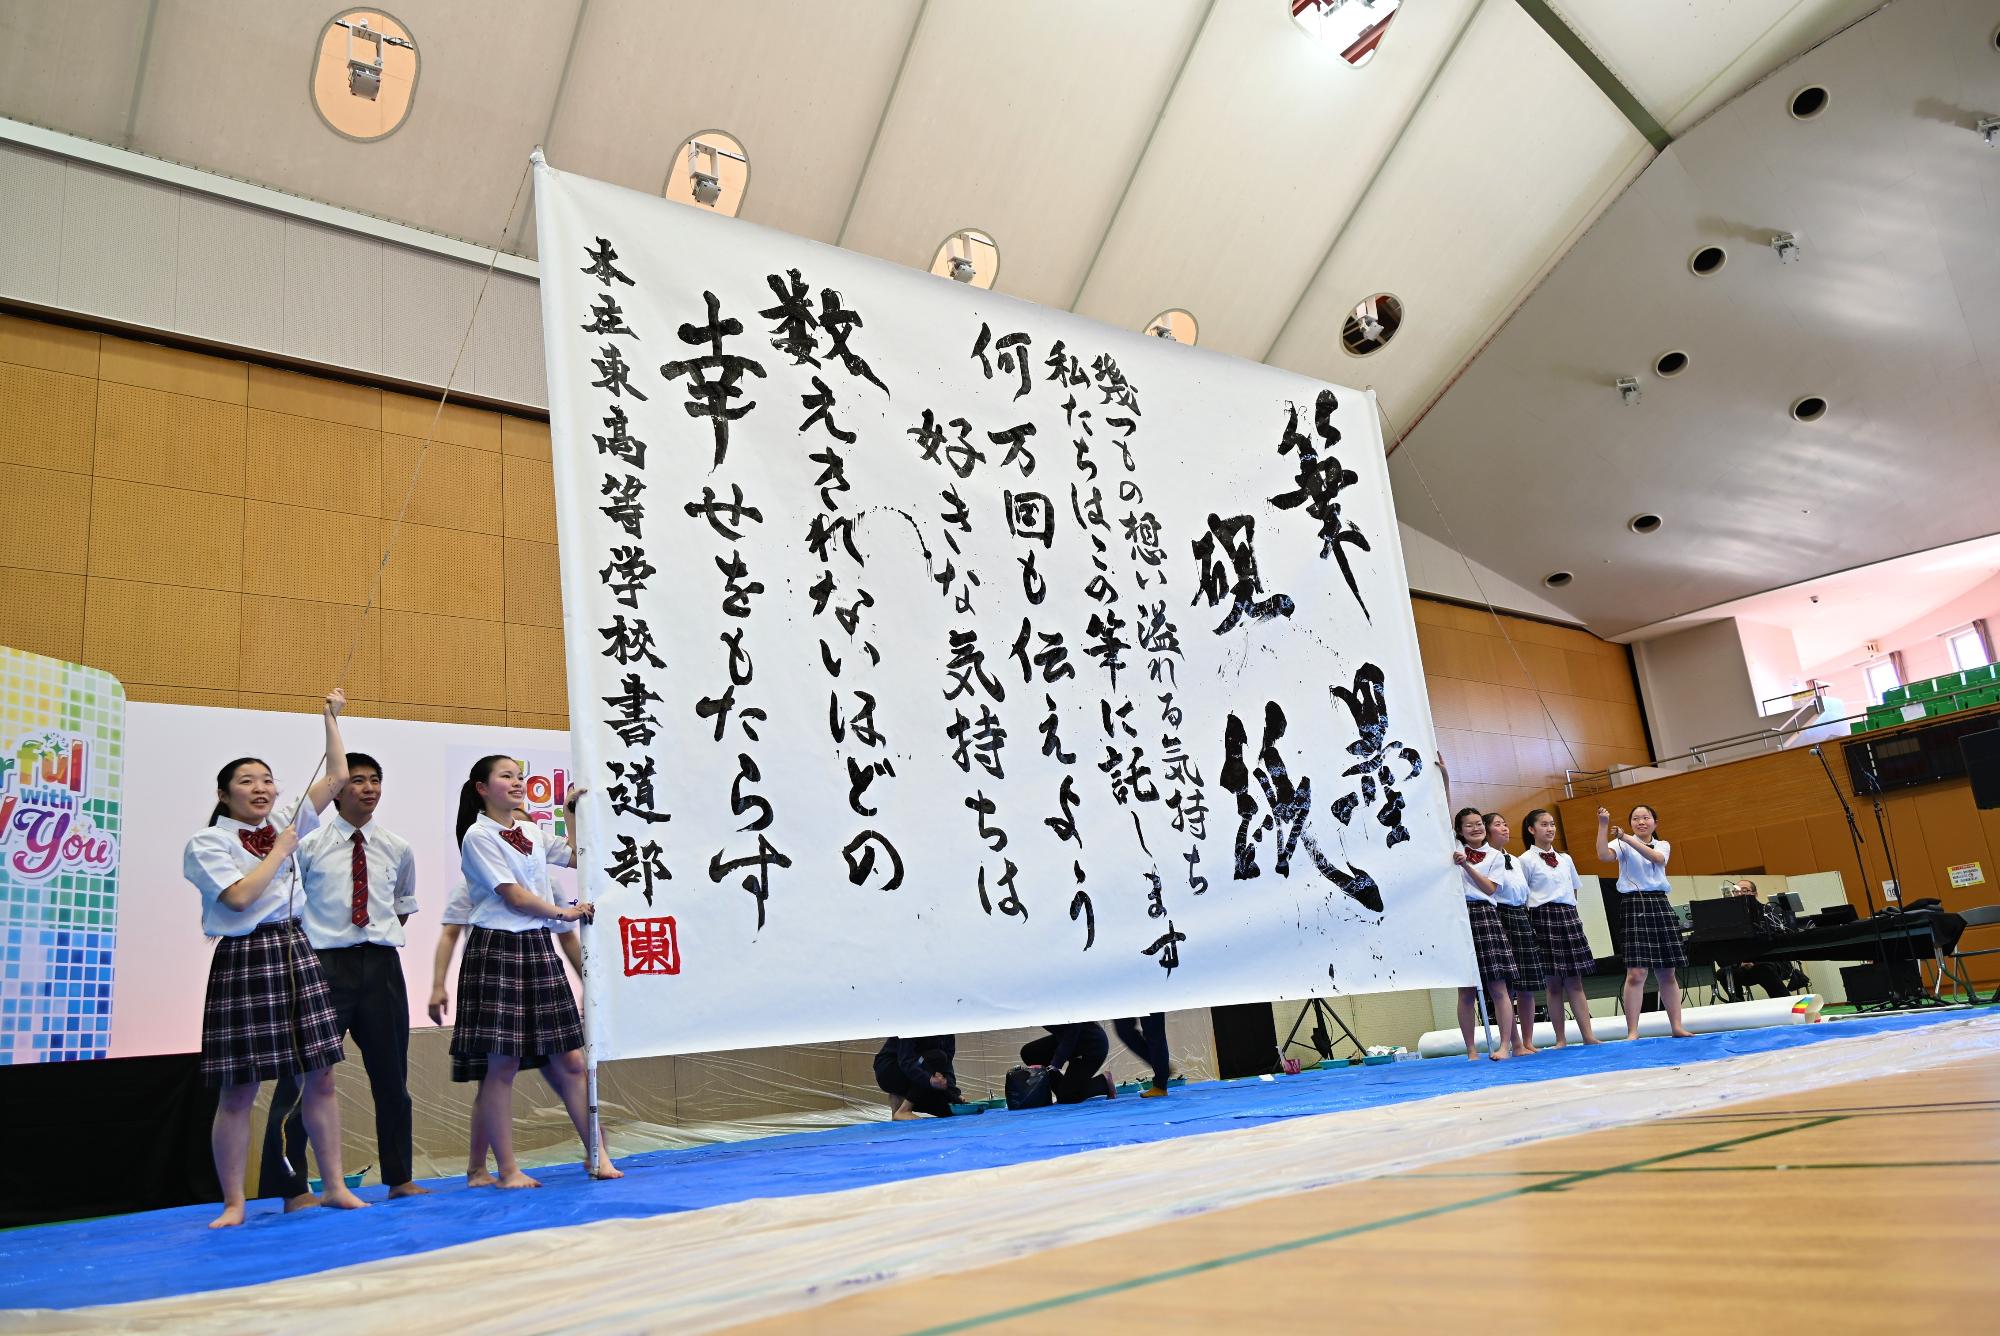 筆 墨
硯 紙
幾つもの想い溢れる気持ち
私たちはこの筆に託します
何万回も伝えよう
好きな気持ちは
数えきれないほどの
幸せをもたらす
本庄東高等学校書道部
東
ful
with
You